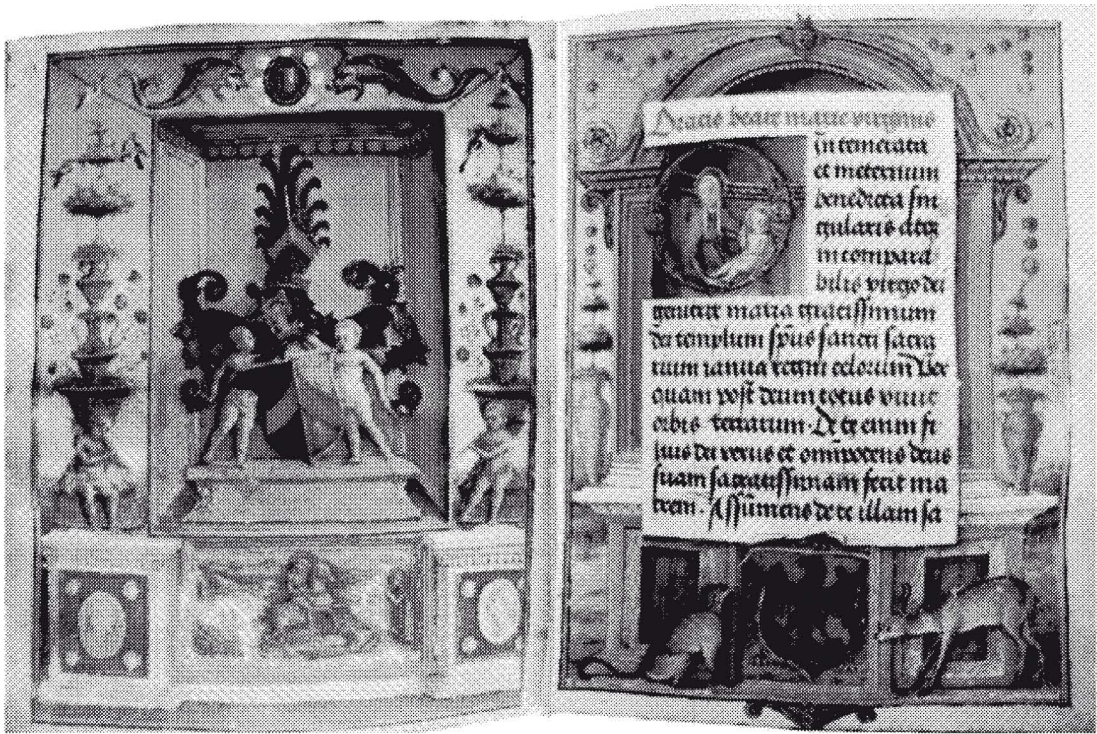 Oracio beate marie virginis
intemerata
et ineternum
benedicta sin
gularis atqȝ
incompara
bilis virgo dei
genitrix maria gratissimum
dei templum sp̄us sancti sacra
rium ianua regni celorum Per
quam post deum totus viuit
orbis terrarum. De te enim fi
lius dei verus et omnipotens deus
suam sacratissimam fecit ma
trem. Assumens de te illam sa